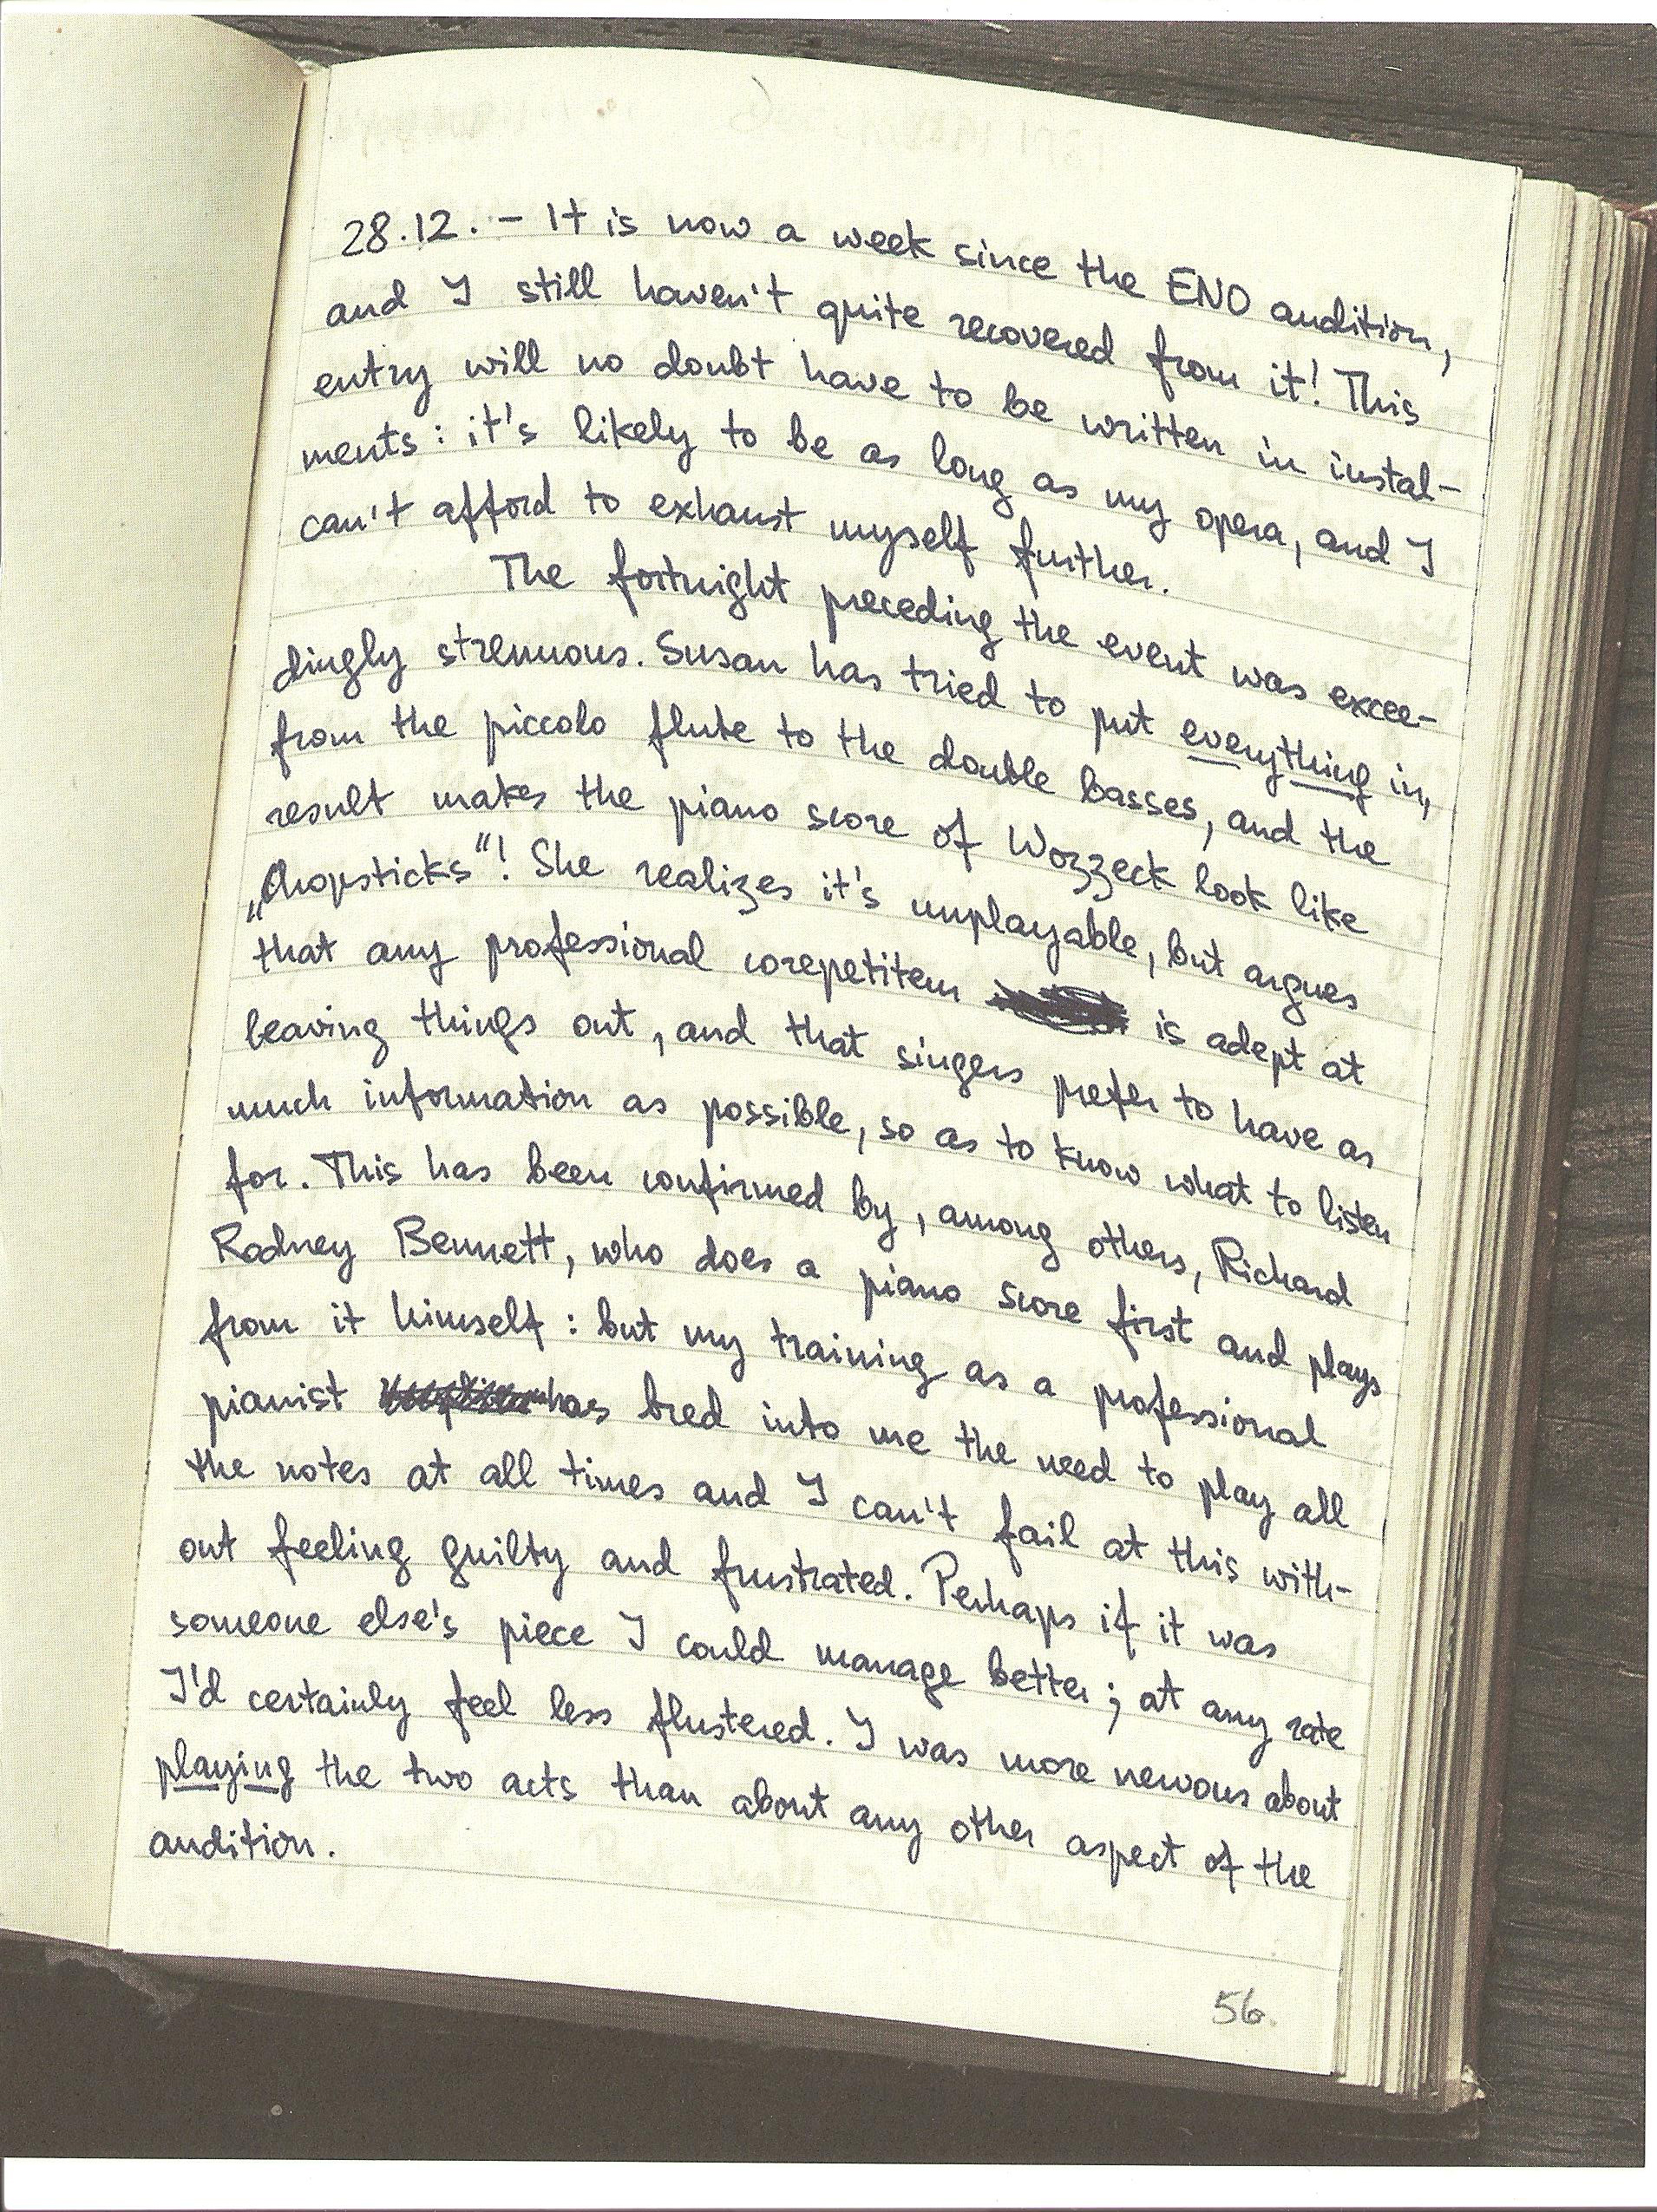 28.12. – It is now a week since the ENO audition,
and I still haven't quite recovered from it! This
entry will no doubt have to be written in instal-
ments: it's likely to be as long as my opera, and I
can't afford to exhaust myself further.
The fortnight preceding the event was excee-
dingly strenuous. Susan has tried to put everything in,
from the piccolo flute to the double basses, and the
result makes the piano score of Wozzeck look like
„Chopsticks“! She realizes it's unplayable, but argues
that any professional corepetiteur is adept at
leaving things out, and that singers prefer to have as
much information as possible, so as to know what to listen
for. This has been confirmed by, among others, Richard
Rodney Bennett, who does a piano score first and plays
from it himself: but my training as a professional
pianist has bred into me the need to play all
the notes at all times and I can't fail at this with-
out feeling guilty and frustrated. Perhaps if it was
someone else's piece I could manage better; at any rate
I'd certainly feel less flustered. I was more nervous about
playing the two acts than about any other aspect of the
audition.
56.